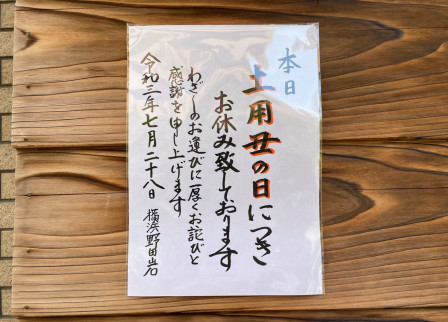 本日
土用丑の日につき
お休み致しております
わざ〳〵のお運びに厚くお詫びと
感謝を申し上げます
令和三年七月二十八日 横浜野田岩